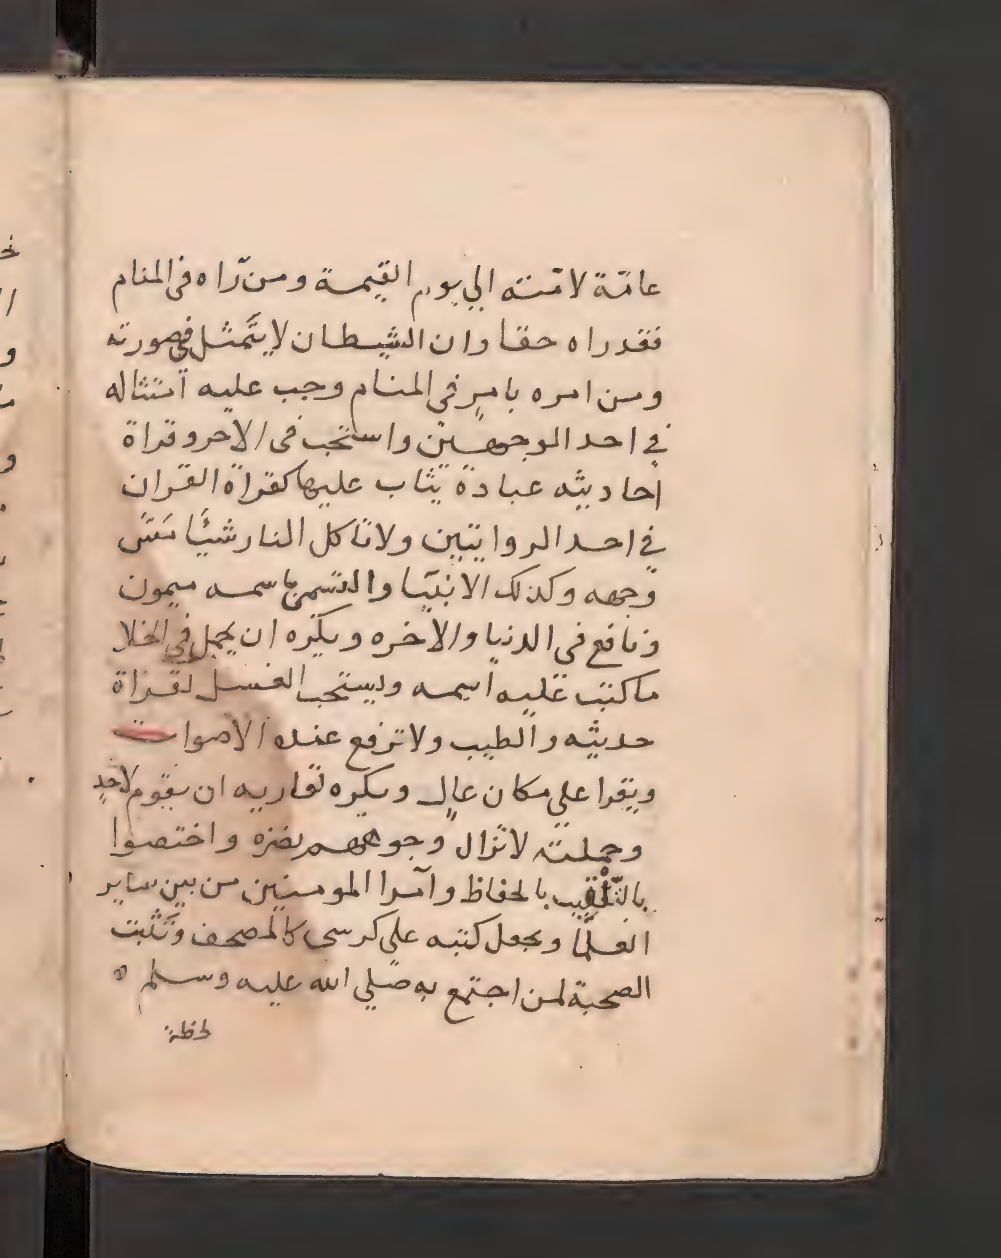 عامّة لامّته الي يوم القيمة ومن رآه في المنام
فقد راه حقا وان الشيطان لا يتمثل في صورته
ومن امره بامر في المنام وجب عليه امتثاله
في احد الوجهين واستحب في الاخر وقراة
احاديثه عبادة يثاب عليها كقراة القران
في احد الروايتين ولا تاكل النار شيئا مسّ
وجهه وكذلك الانبيا والتسمي باسمه ميمون
ونافع في الدنيا والاخره ويكره ان يحمل في الخلا
ما كتب عليه اسمه ويستحب الغسل لقراة
حديثه والطيب ولا ترفع عنده الاصوات
ويقرا علي مكان عال ويكره لقاريه ان يقوم لاحد
وحملته لا تزال وجوههم نضره واختصوا
بالتلقيب بالحفاظ وامرا المومنين من بين ساير
العلما ويجعل كتبه علي كرسي كالمصحف وتثبت
الصحبة لمن اجتمع به صلي الله عليه وسلم ه
لحظة